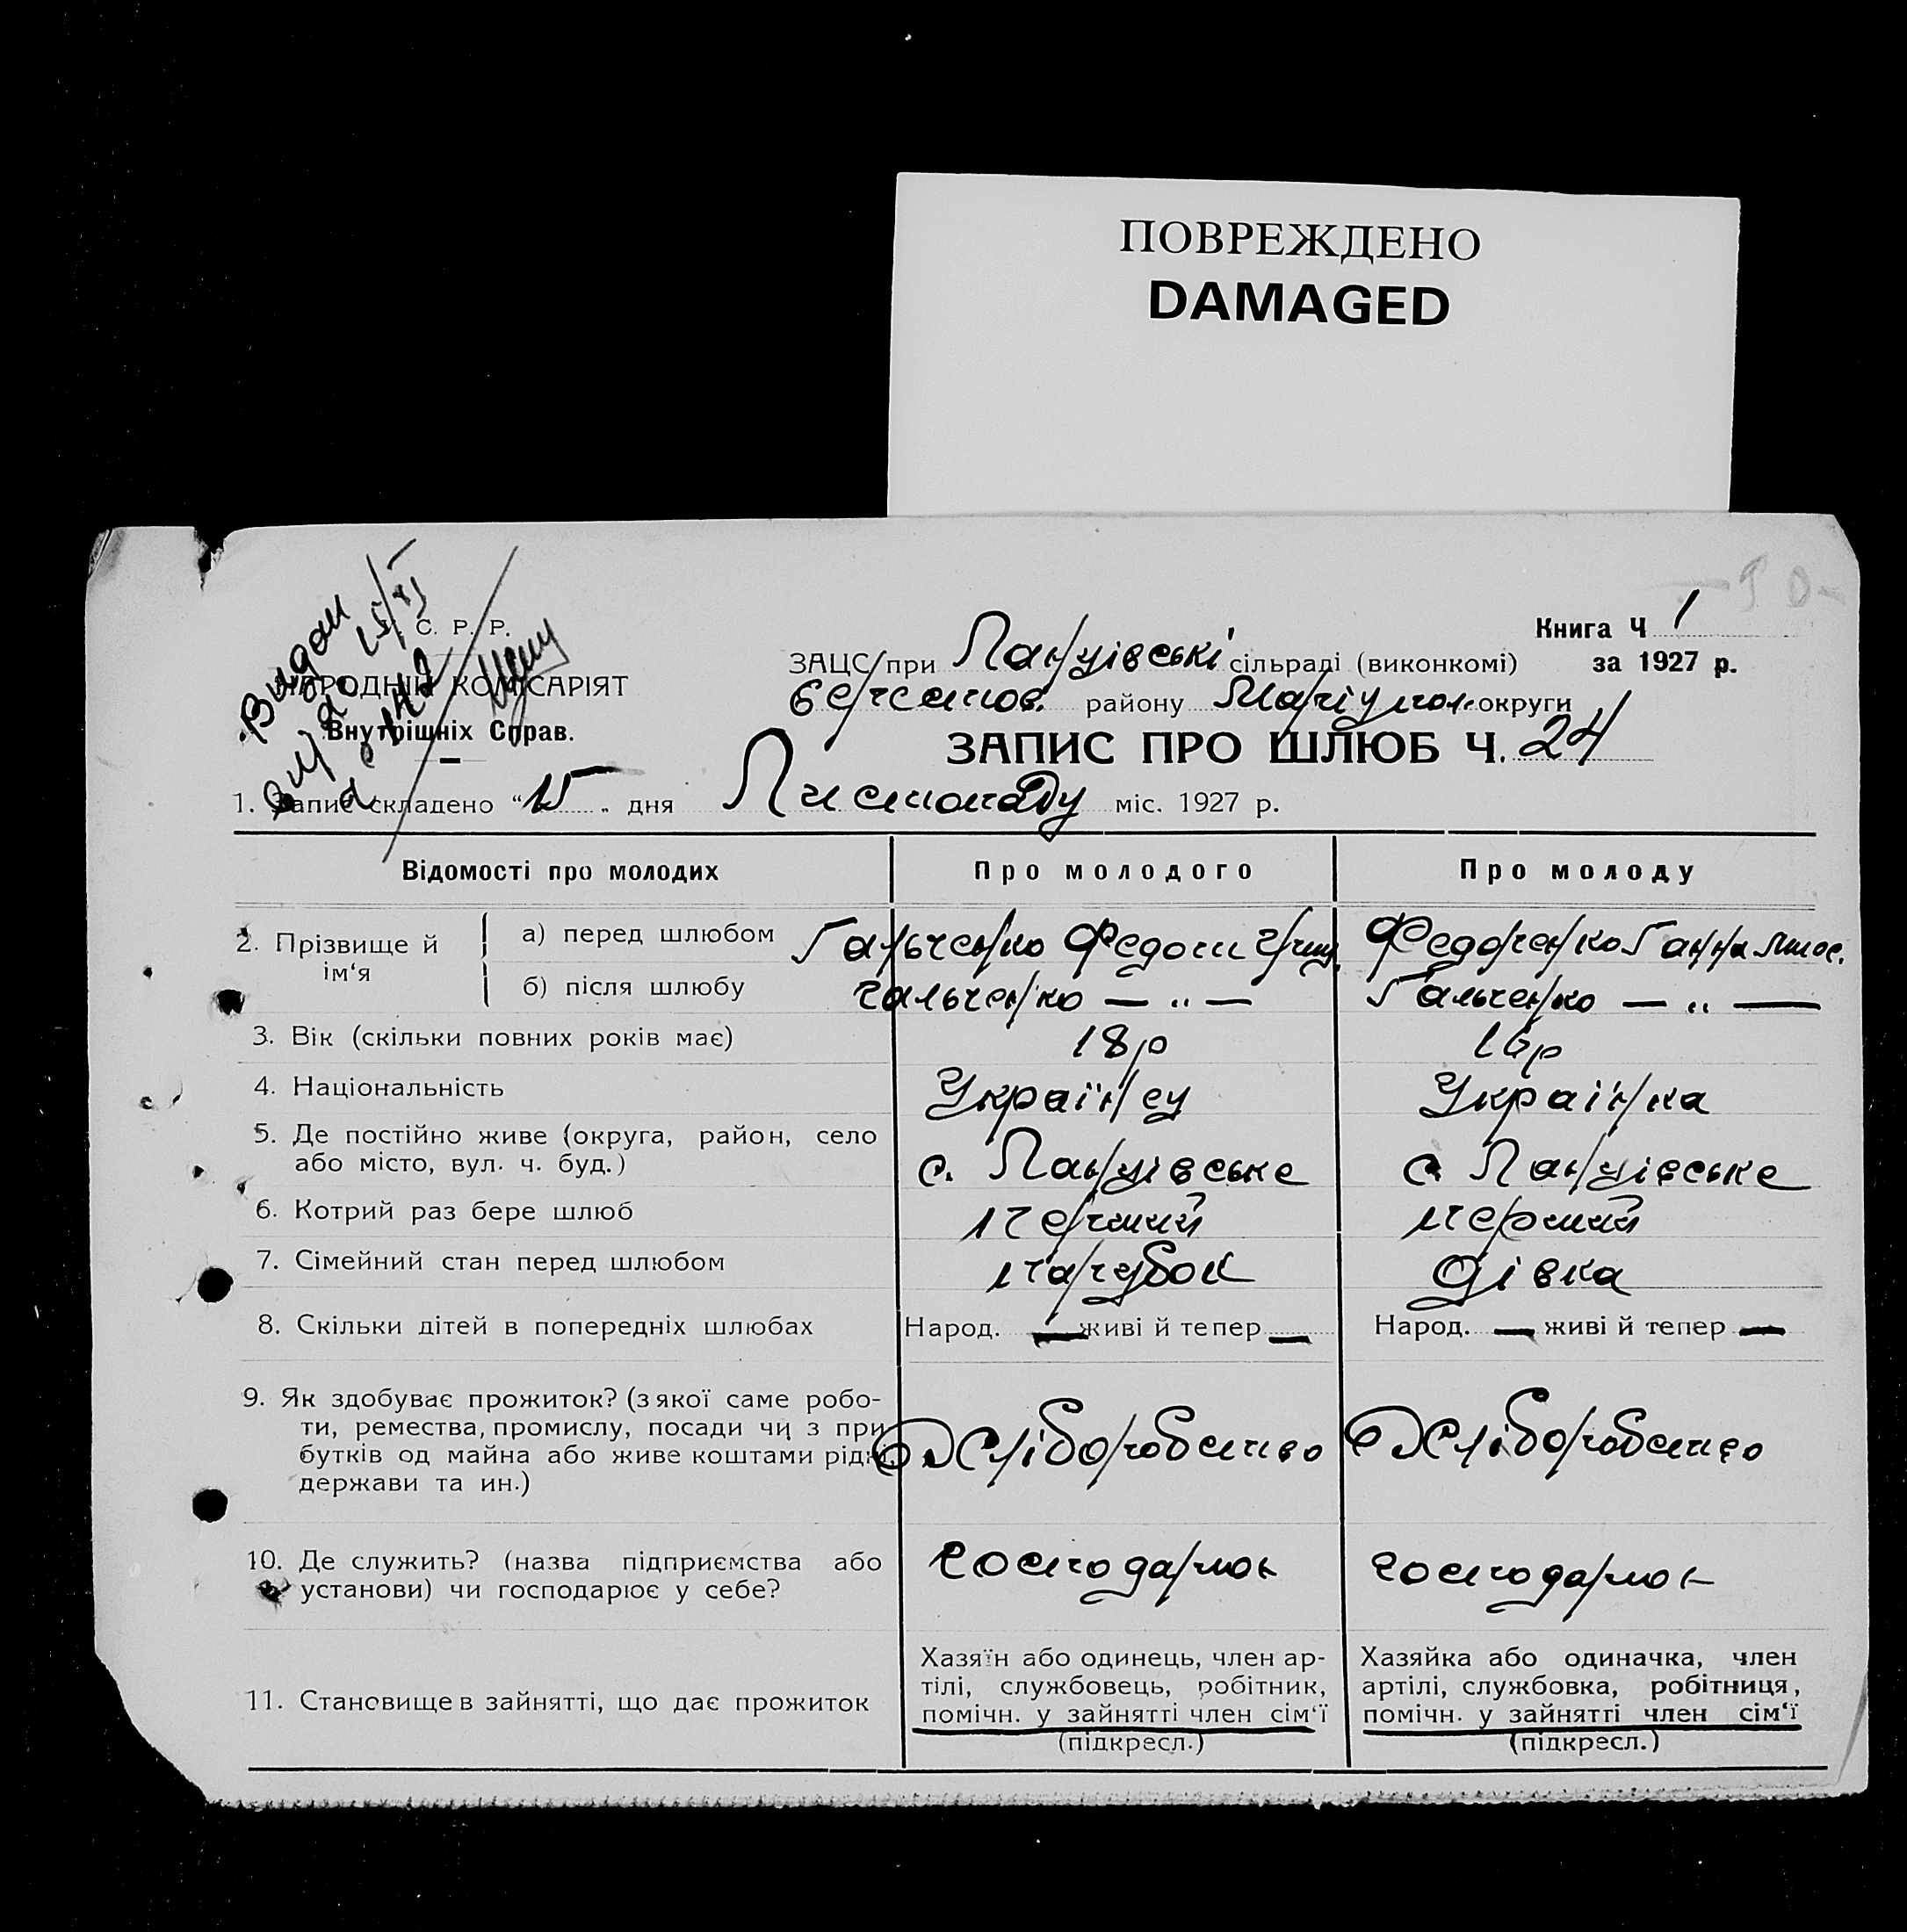 ПОВРЕЖДЕНО
DAMAGED
Видан
С. Р. Р.
НАРОДНІЙ КОМІСАРІЯТ
Внутрішніх Справ.
Книга Ч 1
за 1927 р.
ЗАЦС при Ланцівські сільраді (виконкомі)
району Маріупол. округи
ЗАПИС ПРО ШЛЮБ Ч. 24
1. Запис складено “15„ дня Листопаду міс. 1927 р.
Відомості про молодих Про молодого Про молоду
2. Прізвище й ім‘я
а) перед шлюбом Гальченко Федот Федорченко Ганна
б) після шлюбу Гальченко — „ — Гальченко — „ —
3. Вік (скільки повних років має) 18р 16р
4. Національність Українец Українка
5. Де постійно живе (округа, район, село
або місто, вул. ч. буд.) с. Ланцівське с. Ланцівське
6. Котрий раз бере шлюб перший перший
7. Сімейний стан перед шлюбом парубок дівка
8. Скільки дітей в попередніх шлюбах Народ. — живі й тепер — Народ. — живі й тепер —
9. Як здобуває прожиток? (з якої саме робо-
ти, ремества, промислу, посади чи з при
бутків од майна або живе коштами рідні,
держави та ин.) Хліборобство Хліборобство
10. Де служить? (назва підприємства або
установи) чи господарює у себе? господарює господарює
11. Становище в зайнятті, що дає прожиток
Хазяїн або одинець, член ар-
тілі, службовець, робітник,
помічн. у зайнятті член сім‘ї
(підкресл.)
Хазяйка або одиначка, член
артілі, службовка, робітниця,
помічн. у зайнятті член сім‘ї
(підкресл.)